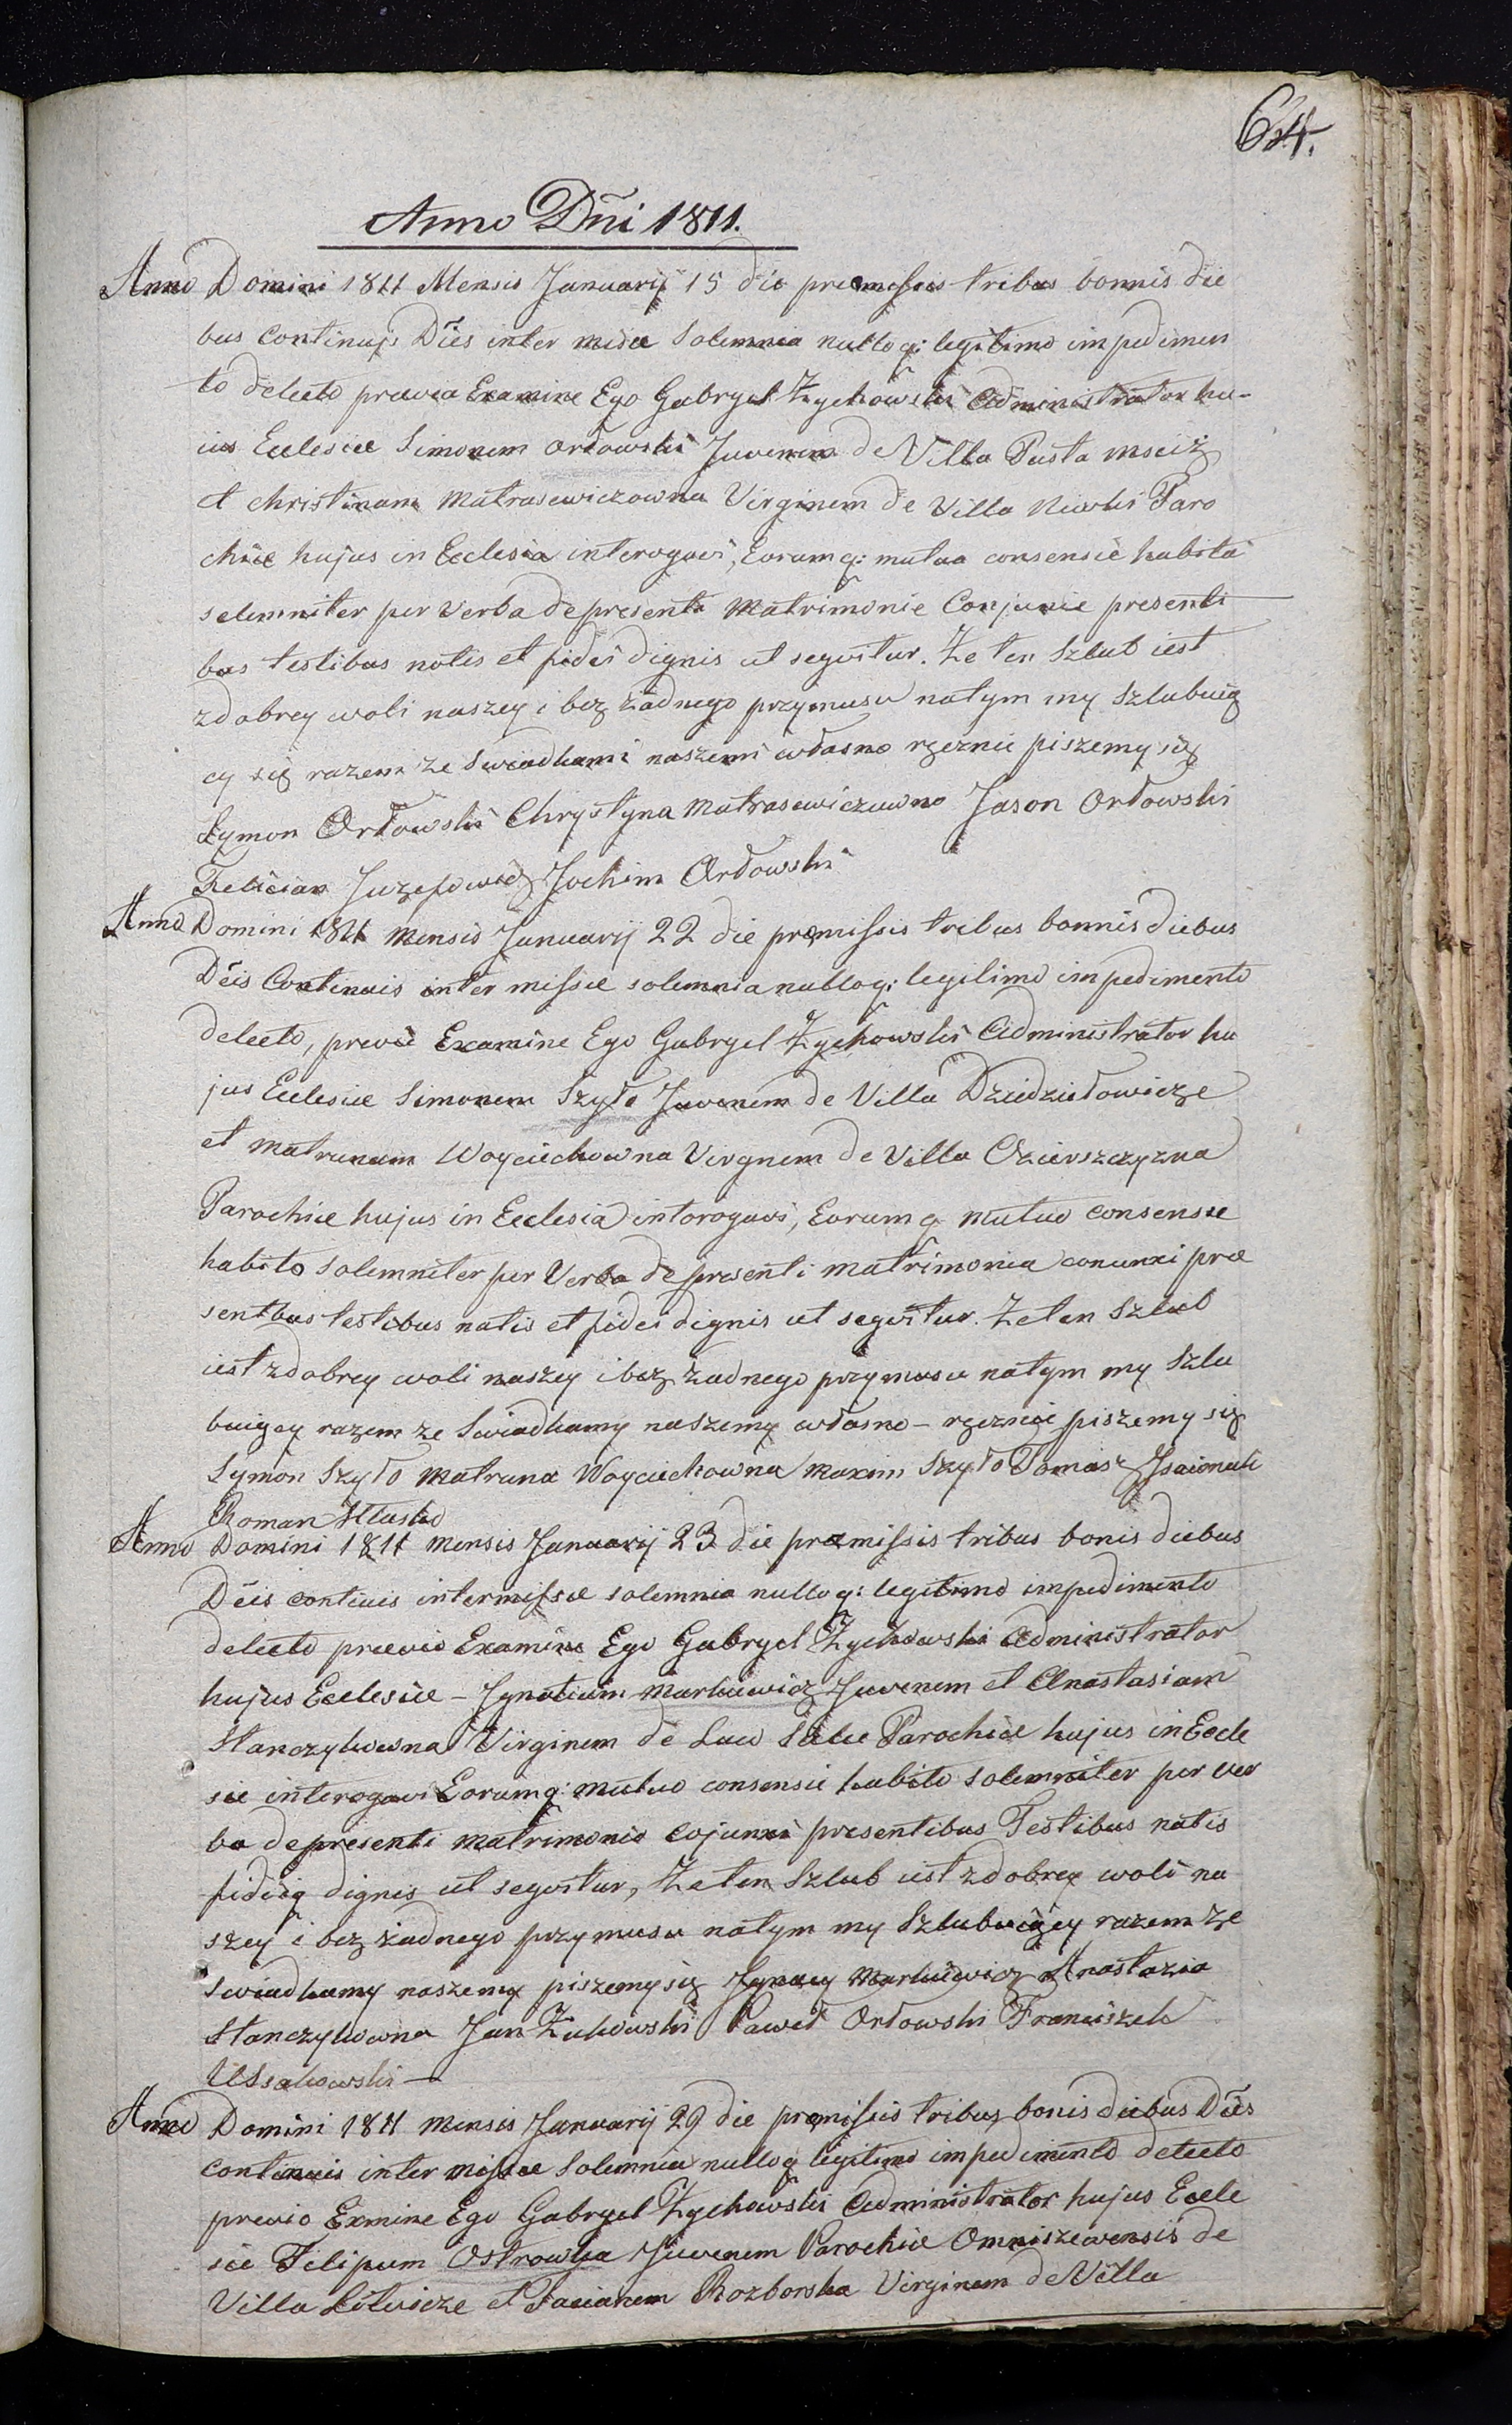 64.
Anno Dñi 1811.
Anno Domini 1811 Mensis Januarij 15 die premissis tribus bonnis die
bus continujs Dies inter misse solemnia nulloq: legitimo impedimen
to detecto previa Examine Ego Gabryel Zychowski Administrator hu-
ius Eclesiæ Simonem Orłowski Juvenem de Villa Pusta Mściż
et Christinam Matrasewiczowna Virginem de Villa Niwki Paro
chiæ hujus in Ecclesia interogavi, Eorumq: mutua consensie habita
selemniter per verba depresenta Matrimonie Conjunxie presenti
bus testibus notis et fidei dignis ut seqvitur. Ze ten Szlub iest
zdobrey woli naszey i bez żadnego przymusu natym my Szlubuią
cy się razem ze Swiadkami naszemi własno ręcznie piszemy się
Symon Orłowski Chrystyna Matrasewiczuwna Jason Orłowski
Felician Juzefowicz Jochim Orłowski
Anno Domini 1811 Mensis Januarij 22 die premissis tribus bonnis diebus
Dëis Continuis inter missie solemnia nulloq: legitimo impedimento
detecto, previe Examine Ego Gabryel Zychowski Administrator hu
jus Eclesiæ Simonem Szyło Juvenem de Villa Dziedziułowicze
et Matrunam Woyciechowna Virgnem de Villa Ozierszczyzna
Parochiæ hujus in Ecclesia intorogavi, Eorumq mutuo consensie
habito solemniter per Verba depresenti matrimonia conunxi præ
sentbus testibus natis et fidei dignis ut seqvitur. Ze ten Szlub
iest zdobrey woli naszey i bez żadnego przymusu natym my Szlu
buiącey razem ze Swiadkamy naszemy własno-ręcznie piszemy się
Symon Szyło Matruna Woyciechowna Maxim Szyło Tomasz Isaionek
Roman Hlusko
Anno Domini 1811 Mensis Januarij 23 die præmissis tribus bonis diebus
Dëis continis intermissæ solemnia nulloq: legitimo impedimento
detecto prævio Examine Ego Gabryel Zychowski Administrator
hujus Eclesiæ - Ignatium Markiewicz Juvenem et Anastasiam
Stanczykowna Virginem de Parochiæ hujus in Eccle
sie interogavi Eorumq: mutuo consensie habito solemniter per ver
ba depresenti matrimonio cojunxi presentibus Testibus natis
fideiq dignis ut seqvitur, Ze ten Szlub iest zdobrey woli na
szey i bez żadnego przymusu natym my Szlubuiącey razem ze
Swiadkamy naszemy piszemy się Ignacy Markiewicz Anastazia
Stanczykowna Jan Zukowski Paweł Orłowski Franciszek
Ussakowski -
Anno Domini 1811 Mensis Januarij 29 die premissis tribus bonis diebus Dëis
continuis inter missæ solemnia nulloq legitimo impedimento detecto
previo Exmine Ego Gabryel Zychowski Administrator hujus Eccle
sie Filipum Ostrowka Juvenem Parochiæ Omniszewensis de
Villa Litwicze et Rozborska Virginem de Villa